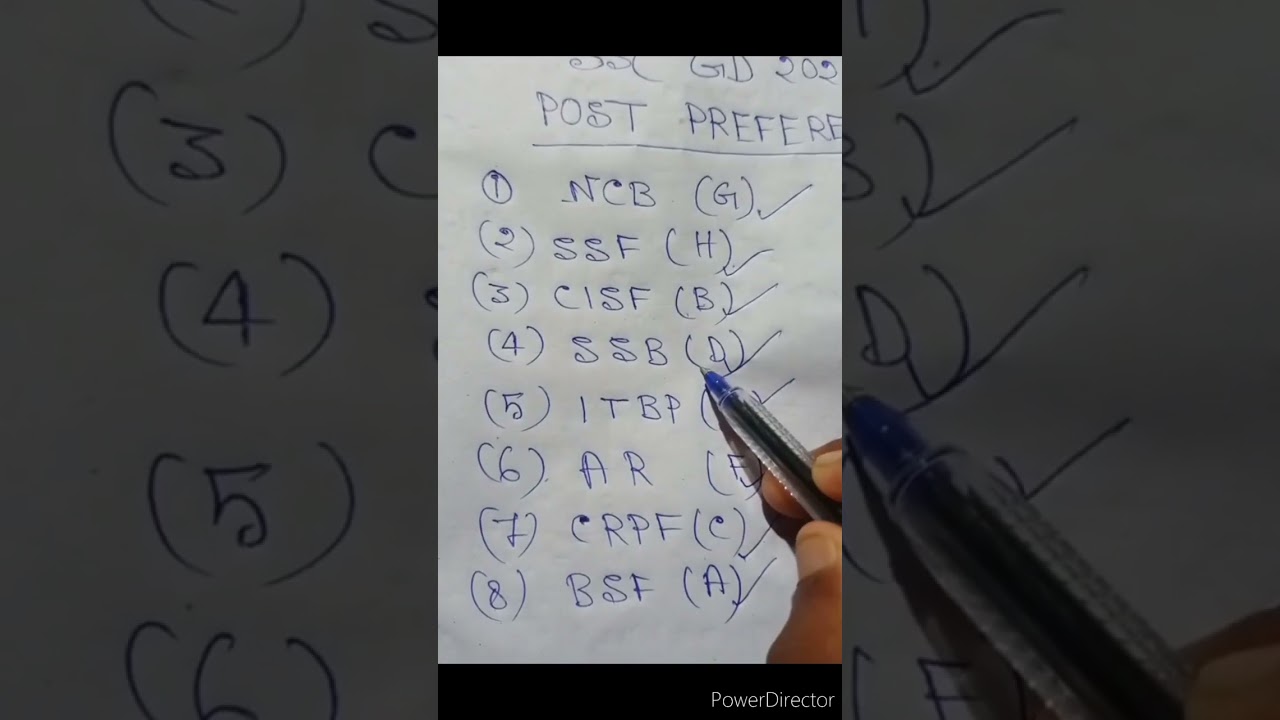 SSC GD 202
POST PREFERE
① NCB (G) ✓
(2) SSF (H) ✓
(3) CISF (B) ✓
(4) SSB (D) ✓
(5) ITBP ✓
(6) AR (F)
(7) CRPF (C) ✓
(8) BSF (A) ✓
PowerDirector